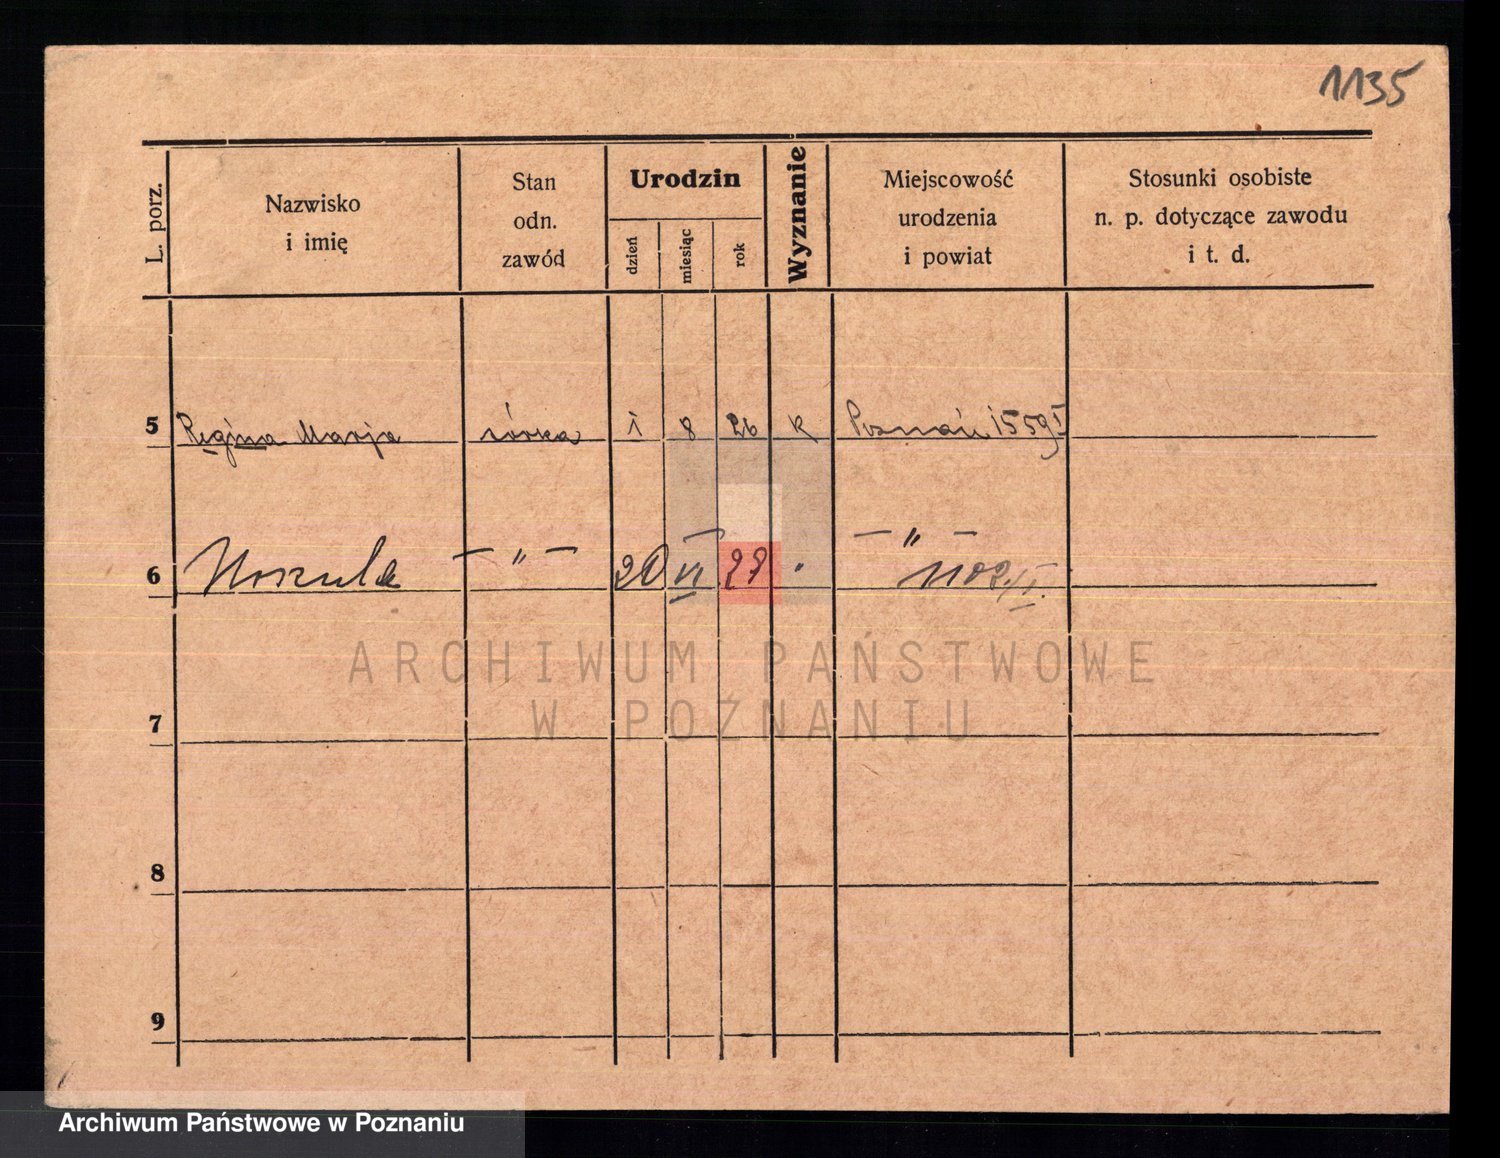 1135
L. porz.
Nazwisko
i imię
Stan
odn.
zawód
Urodzin
dzień
miesiąc
rok
Wyznanie
Miejscowość
urodzenia
i powiat
Stosunki osobiste
n. p. dotyczące zawodu
i t. d.
5 Regina Marja córka 1 8 26 k Poznań 1559/I
6 Urszula — " — 20 VI 28 — " — 1102/I.
ARCHIWUM PAŃSTWOWE
W POZNANIU
7
8
9
Archiwum Państwowe w Poznaniu